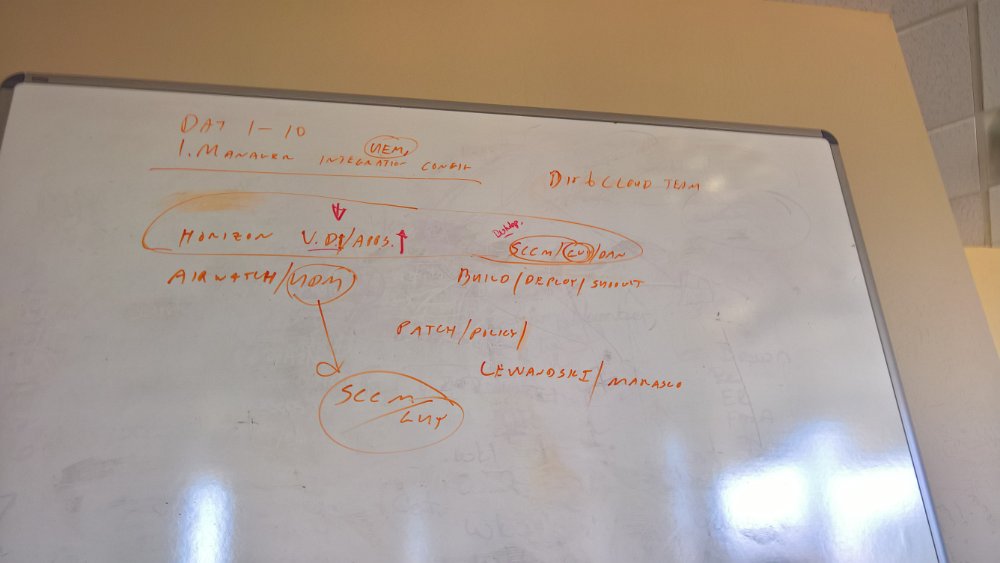 DAY 1-10
UEM
I. MANAGER INTEGRATION CONFIG
DIR 6 CLOUD TEAM
Desktop.
HORIZON V.DI/APPS. SCCM/GUY/DAN
AIRWATCH/UDM BUILD/DEPLOY/SUPPORT
PATCH/POLICY/
LEWANDSKI/MARASCO
SCCM
GUY